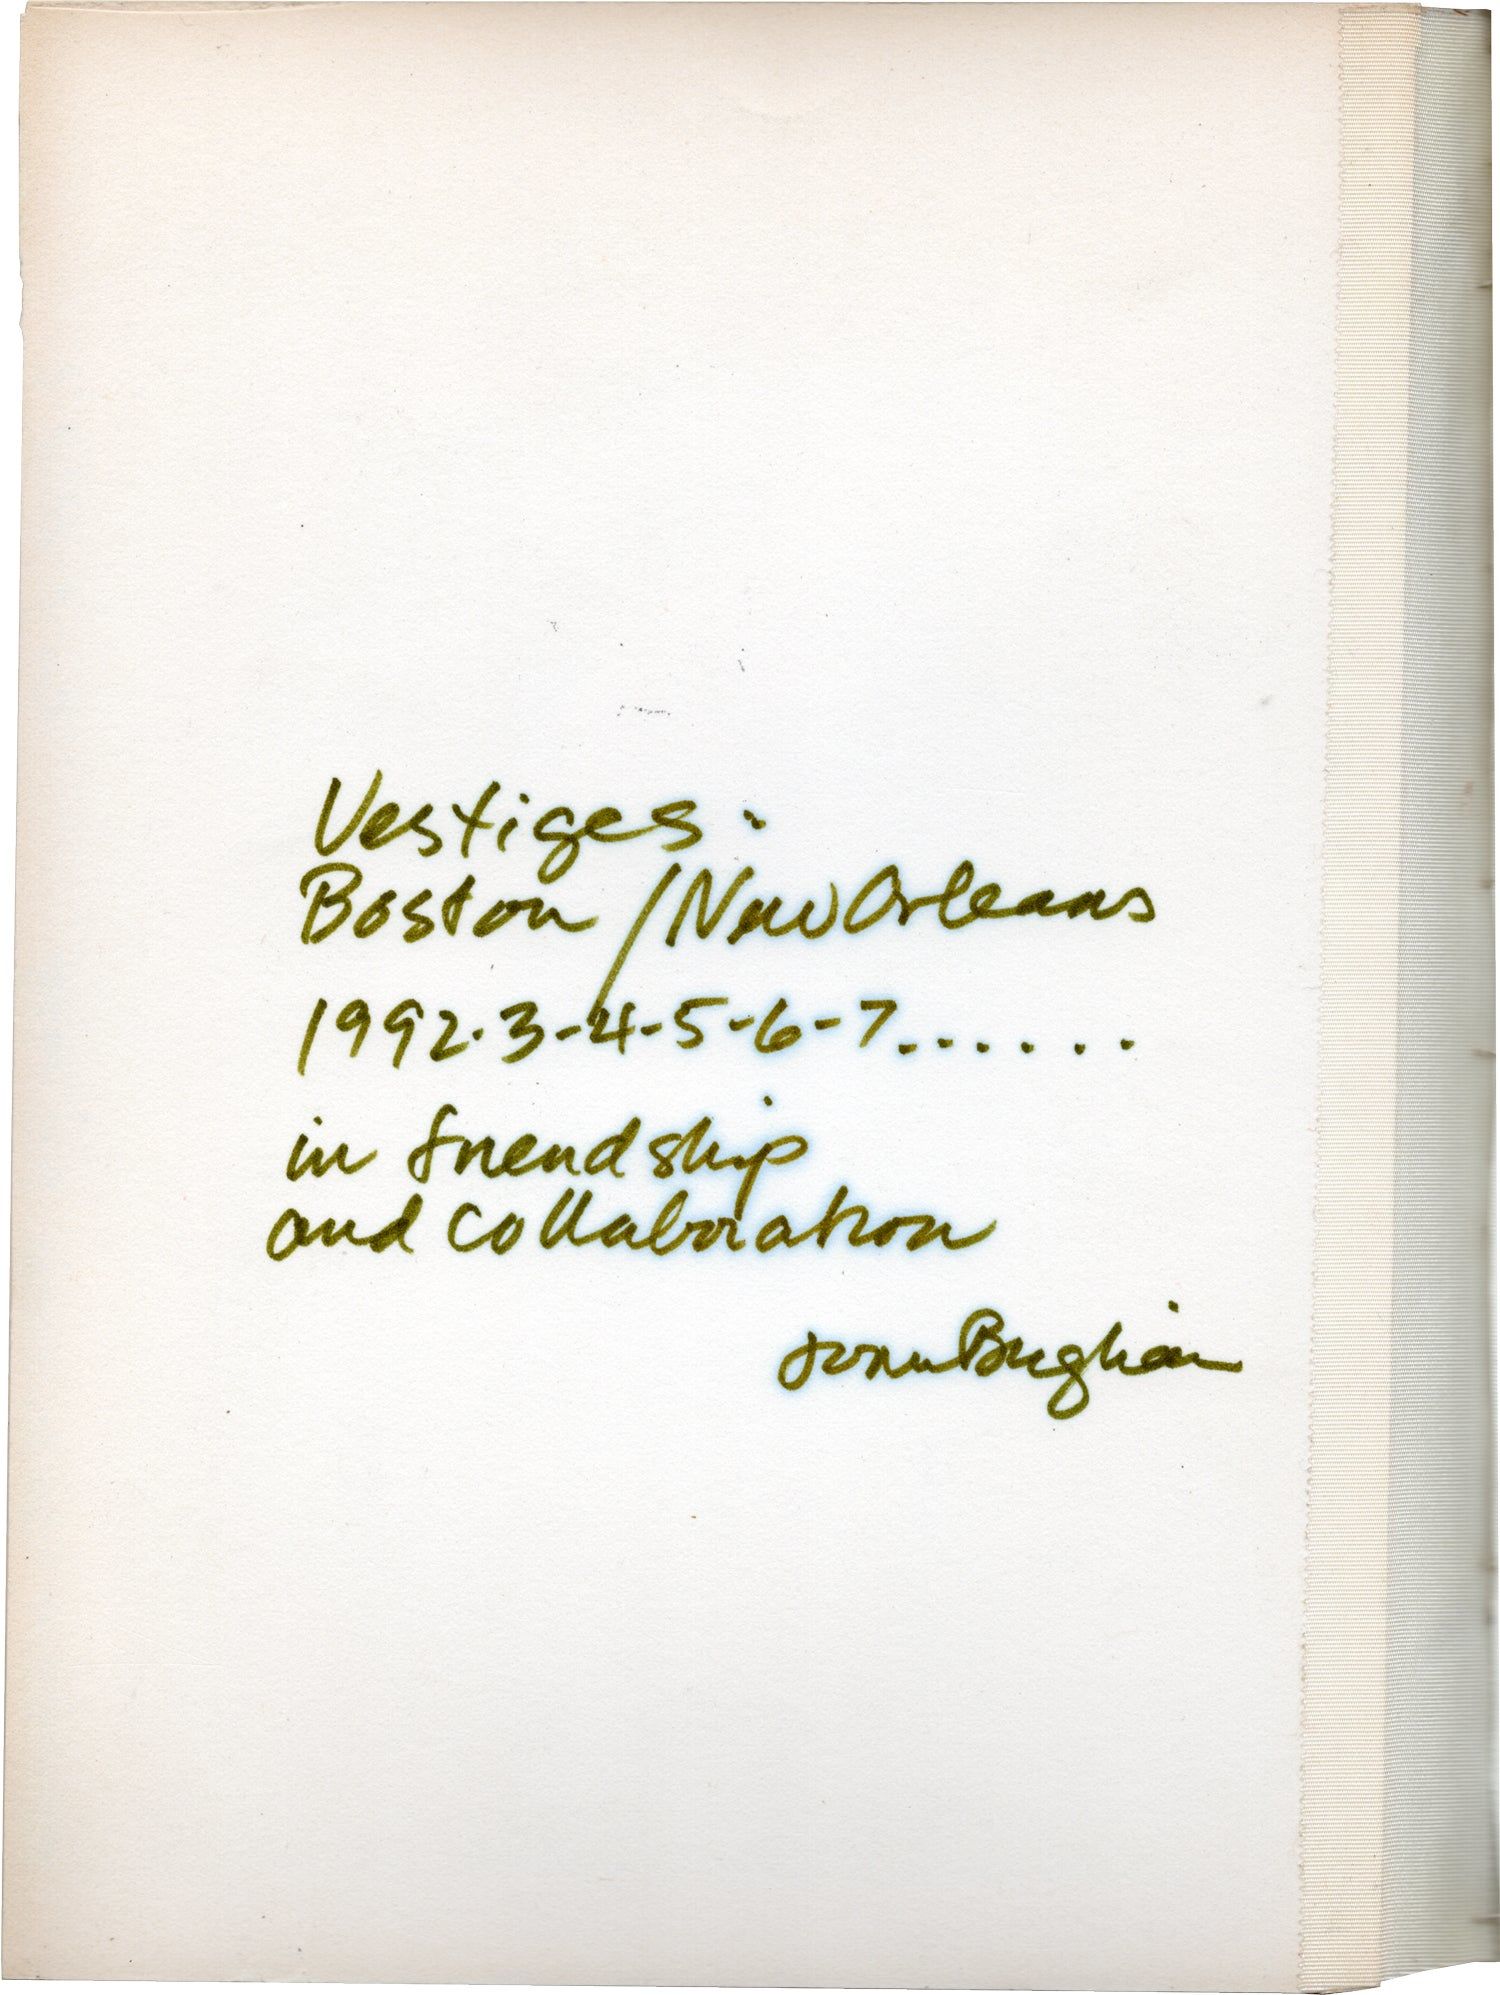 Vestiges:
Boston / New Orleans
1992-3-4-5-6-7......
in friendship
and collaboration
Joan Brigham